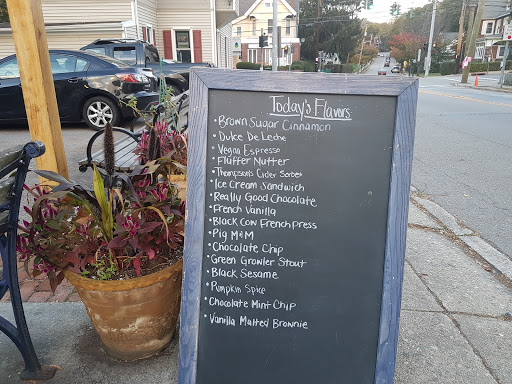 Today's Flavors
• Brown Sugar Cinnamon
• Dulce De Leche
• Vegan Espresso
• Fluffer Nutter
• Thompson's Cider Sorbet
• Ice Cream Sandwich
• Really Good Chocolate
• French Vanilla
• Black Cow French Press
• Pig M&M
• Chocolate Chip
• Green Growler Stout
• Black Sesame
• Pumpkin Spice
• Chocolate Mint Chip
• Vanilla Malted Brownie